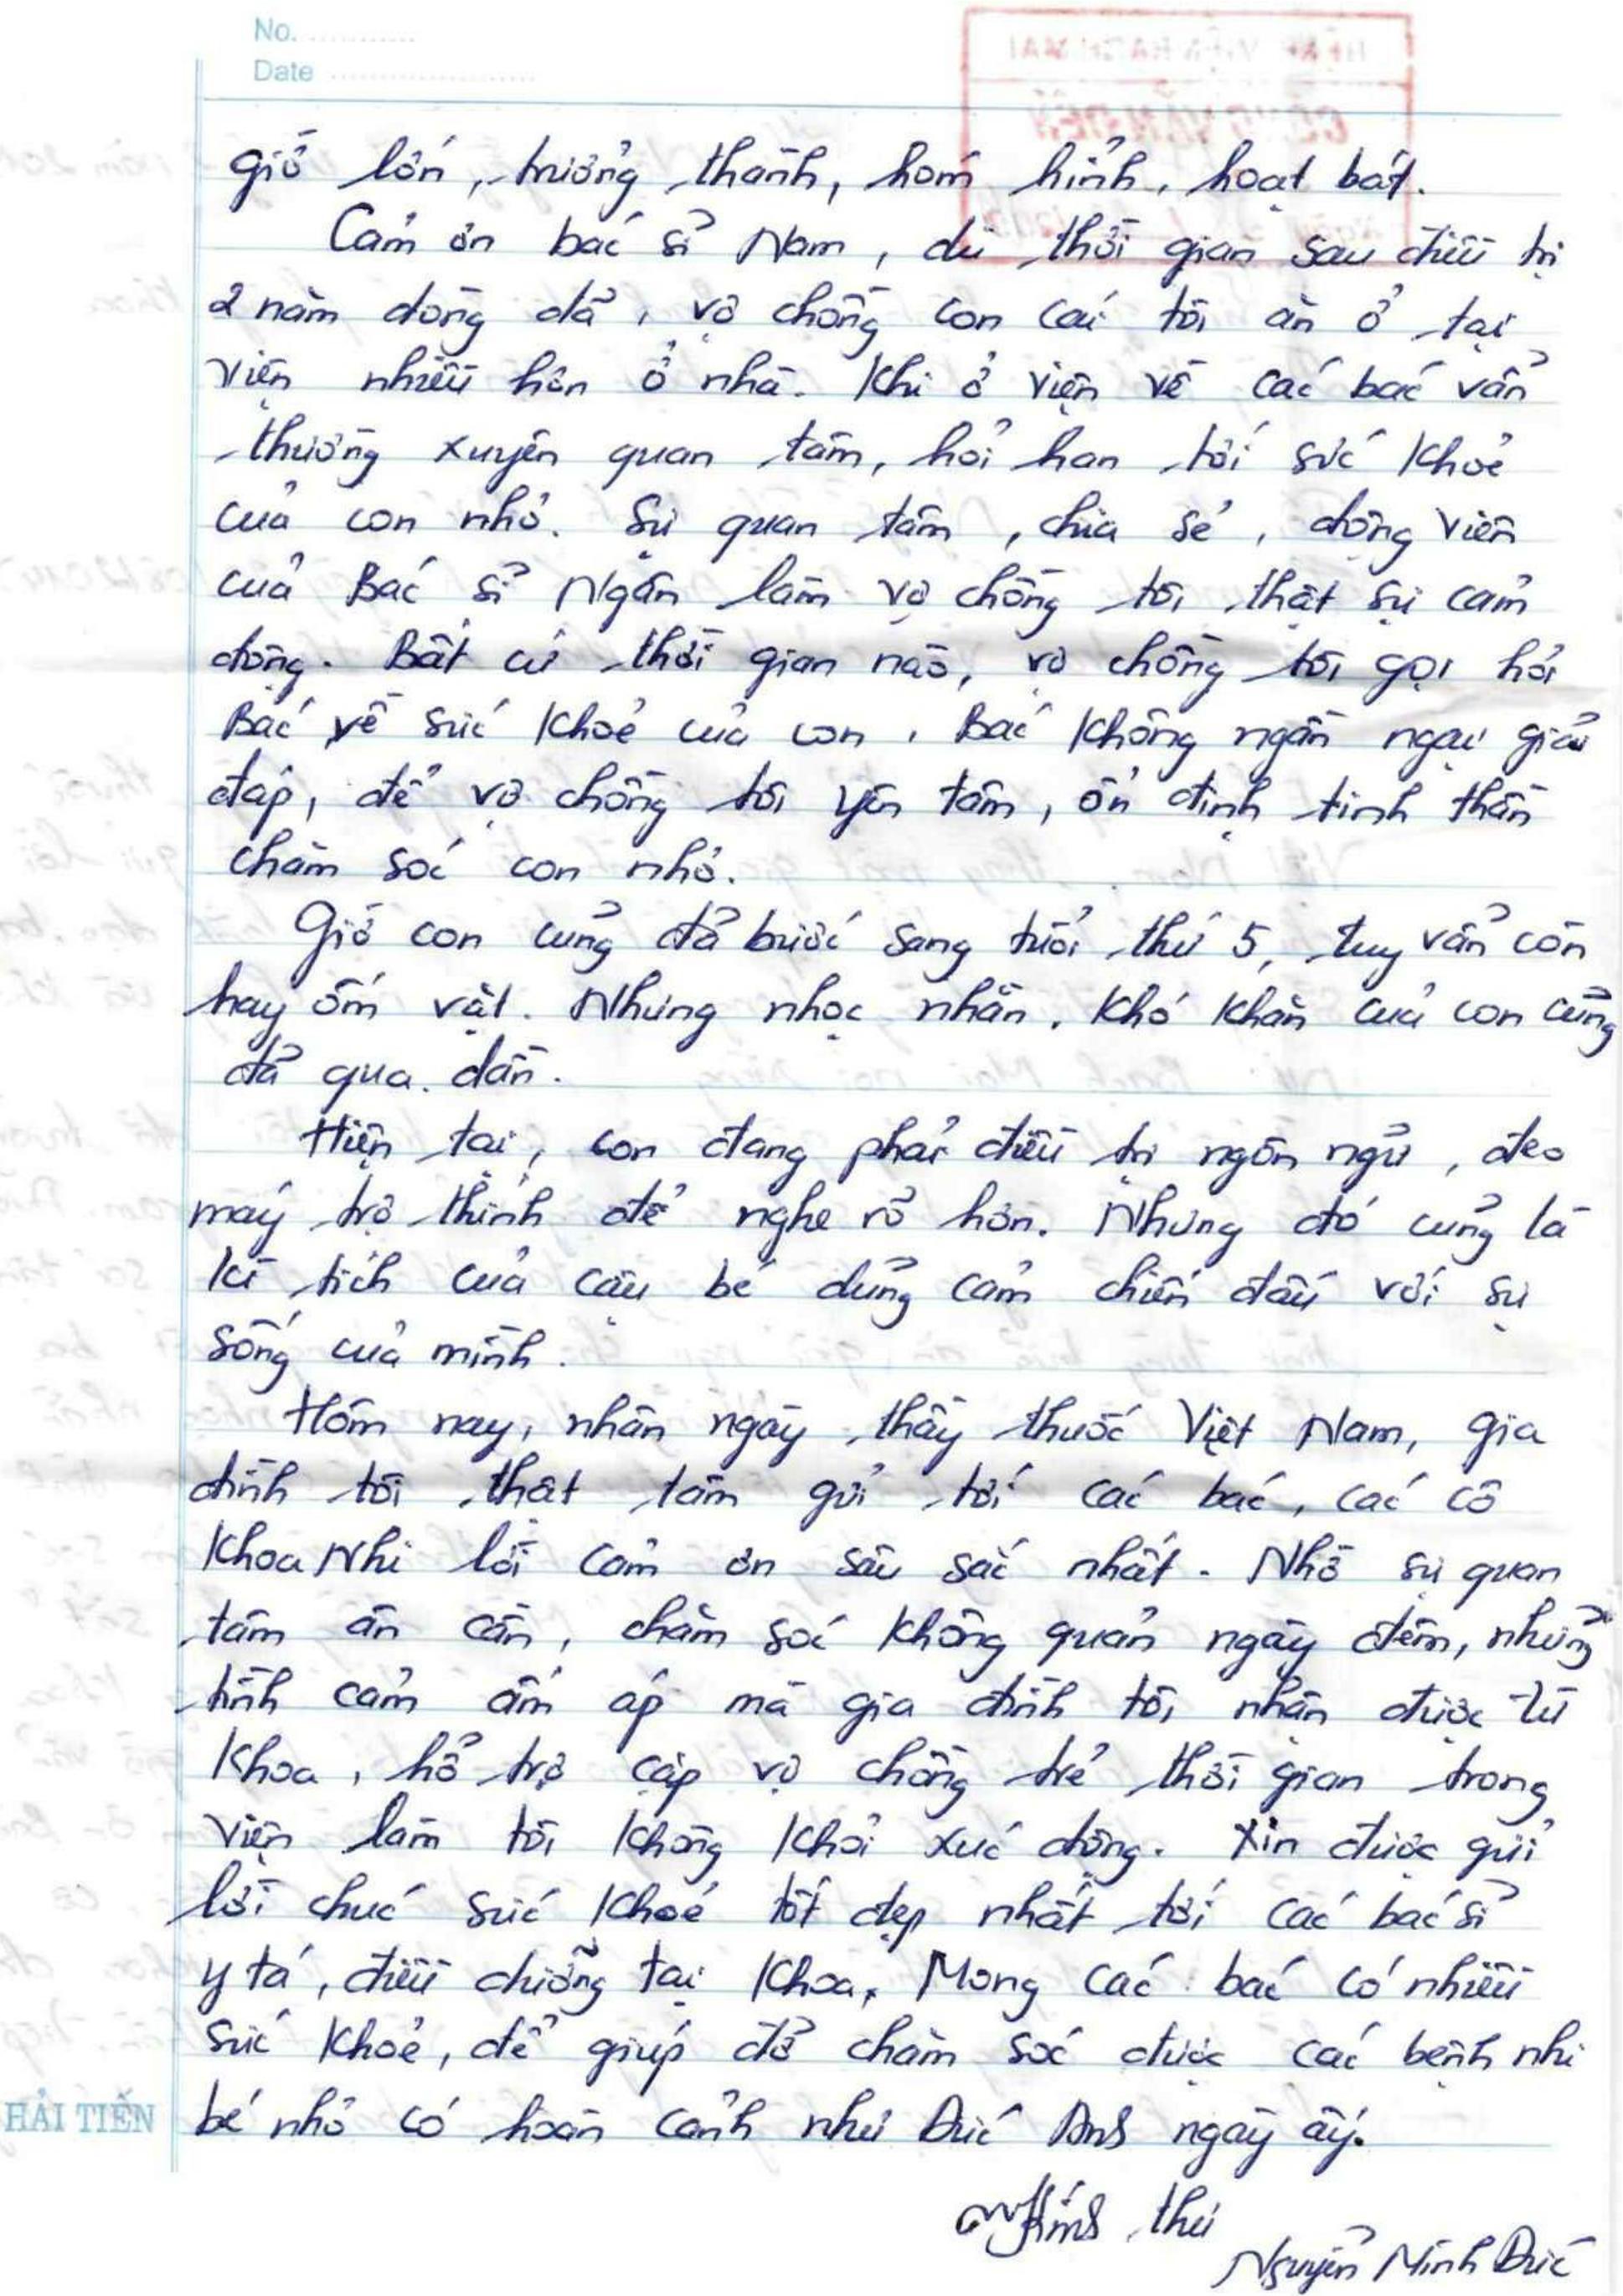 No. ............
Date .....................
giờ lớn, trưởng thành, hóm hỉnh, hoạt bát.
Cảm ơn bác sĩ Nam, dù thời gian sau điều trị
2 năm dòng dã, vợ chồng con cái tôi ăn ở tại
viện nhiều hơn ở nhà. Khi ở viện về các bác vẫn
thường xuyên quan tâm, hỏi han tới sức khoẻ
của con nhỏ. Sự quan tâm, chia sẻ, động viên
của Bác sĩ Ngân làm vợ chồng tôi thật sự cảm
động. Bất cứ thời gian nào, vợ chồng tôi gọi hỏi
Bác về sức khoẻ của con, Bác không ngần ngại giải
đáp, để vợ chồng tôi yên tâm, ổn định tinh thần
chăm sóc con nhỏ.
Giờ con cũng đã bước sang tuổi thứ 5, tuy vẫn còn
hay ốm vặt. Nhưng nhọc nhằn, khó khăn của con cũng
đã qua dần.
Hiện tại, con đang phải điều trị ngôn ngữ, đeo
máy trợ thính để nghe rõ hơn. Nhưng đó cũng là
kì tích của cậu bé dũng cảm chiến đấu với sự
sống của mình.
Hôm nay, nhân ngày thầy thuốc Việt Nam, gia
đình tôi thật tâm gửi tới các bác, các cô
khoa Nhi lời cảm ơn sâu sắc nhất. Nhờ sự quan
tâm ân cần, chăm sóc không quản ngày đêm, những
tình cảm ấm áp mà gia đình tôi nhận được từ
khoa, hỗ trợ cặp vợ chồng trẻ thời gian trong
viện làm tôi không khỏi xúc động. Xin được gửi
lời chúc sức khoẻ tốt đẹp nhất tới các bác sĩ
y tá, điều dưỡng tại khoa, Mong các bác có nhiều
sức khoẻ, để giúp đỡ chăm sóc được các bệnh nhi
bé nhỏ có hoàn cảnh như Đức Anh ngày ấy.
HẢI TIẾN
Kính thư
Nguyễn Minh Đức